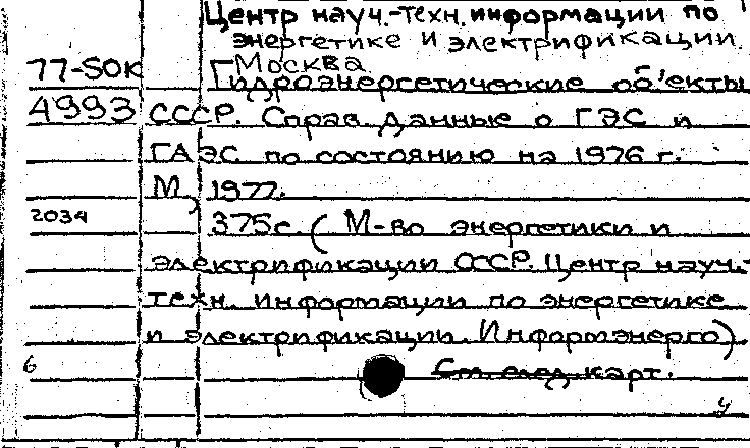 Центр науч.-техн. информации по
энергетике и электрификации.
Москва
77-50К Гидроэнергетические объекты
4993 СССР. Справ. данные о ГЭС и
ГАЭС по состоянию на 1976 г.
М, 1977.
2034 375с. (М-во энергетики и
электрификации СССР. Центр науч.-
техн. информации по энергетике
и электрификации. Информэнерго)
6 См. след. карт.
у